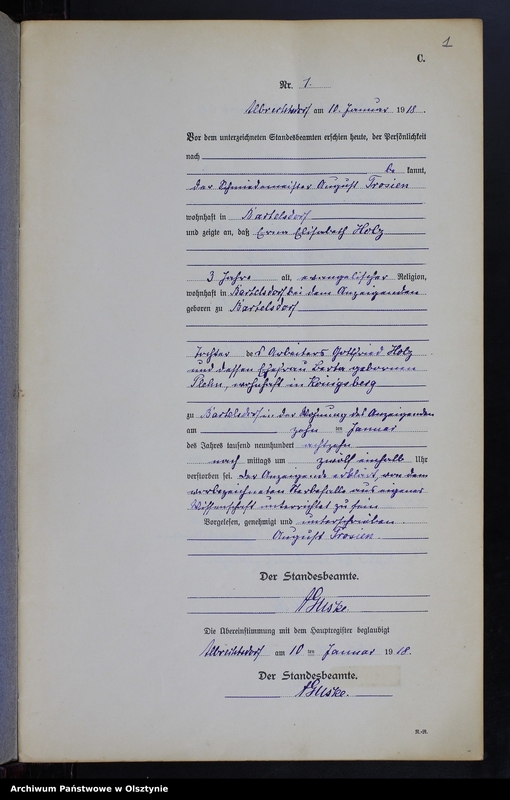 1
C.
Nr. 1.
Albrechtsdorf am 10. Januar 1918.
Vor dem unterzeichneten Standesbeamten erschien heute, der Persönlichkeit
nach
be kannt,
der Schmiedemeister August Trosien
wohnhaft in Bartelsdorf
und zeigte an, daß Erna Elisabeth Holz
3 Jahre alt, evangelischer Religion,
wohnhaft in Bartelsdorf bei dem Anzeigenden
geboren zu Bartelsdorf
Tochter des Arbeiters Gottfried Holz
und dessen Ehefrau Berta geborenen
wohnhaft in Königsberg
zu Bartelsdorf in der Wohnung des Anzeigenden
am zehn ten Januar
des Jahres tausend neunhundert achtzehn
nach mittags um zwölf einhalb Uhr
verstorben sei. Der Anzeigende erklärt, von dem
vorbezeichneten Sterbefalle aus eigener
Wissenschaft unterrichtet zu sein
Vorgelesen, genehmigt und unterschrieben
August Trosien.
Der Standesbeamte.
Guske
Die Übereinstimmung mit dem Hauptregister beglaubigt
Albrechtsdorf am 10 ten Januar 1918.
Der Standesbeamte.
Guske.
K.-R.
Archiwum Państwowe w Olsztynie